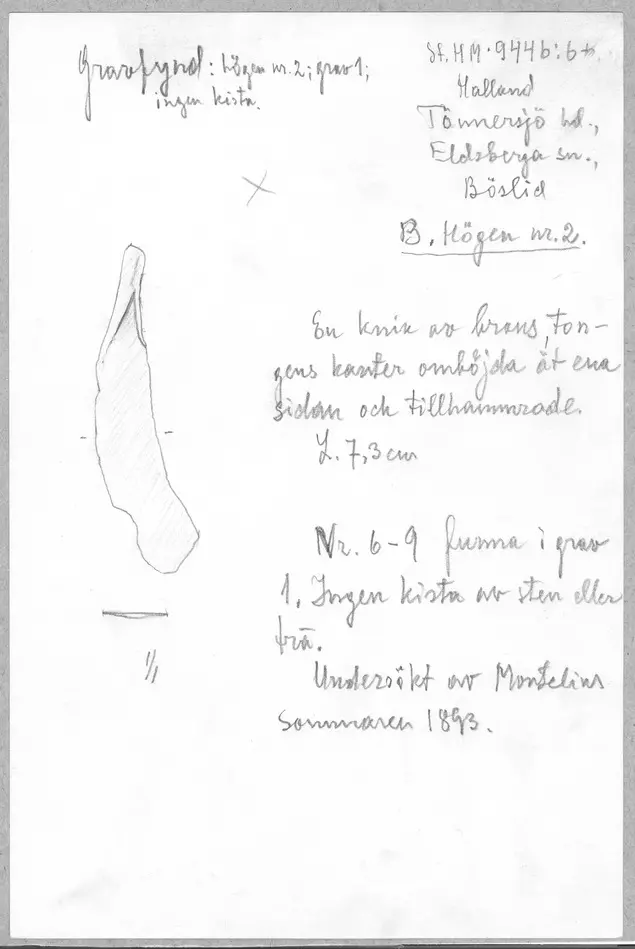 Gravfynd: högen nr. 2; grav 1;
ingen kista.
St. H M. 9446: 6
Halland
Tönnersjö hd.,
Eldsberga sn.,
Böslid
B. Högen nr. 2.
En kniv av brons, ton-
gens kanter omböjda åt ena
sidan och tillhamrade.
L. 7,3 cm
Nr. 6-9 funna i grav
1. Ingen kista av sten eller
trä.
Undersökt av Montelius
Sommaren 1893.
1/1